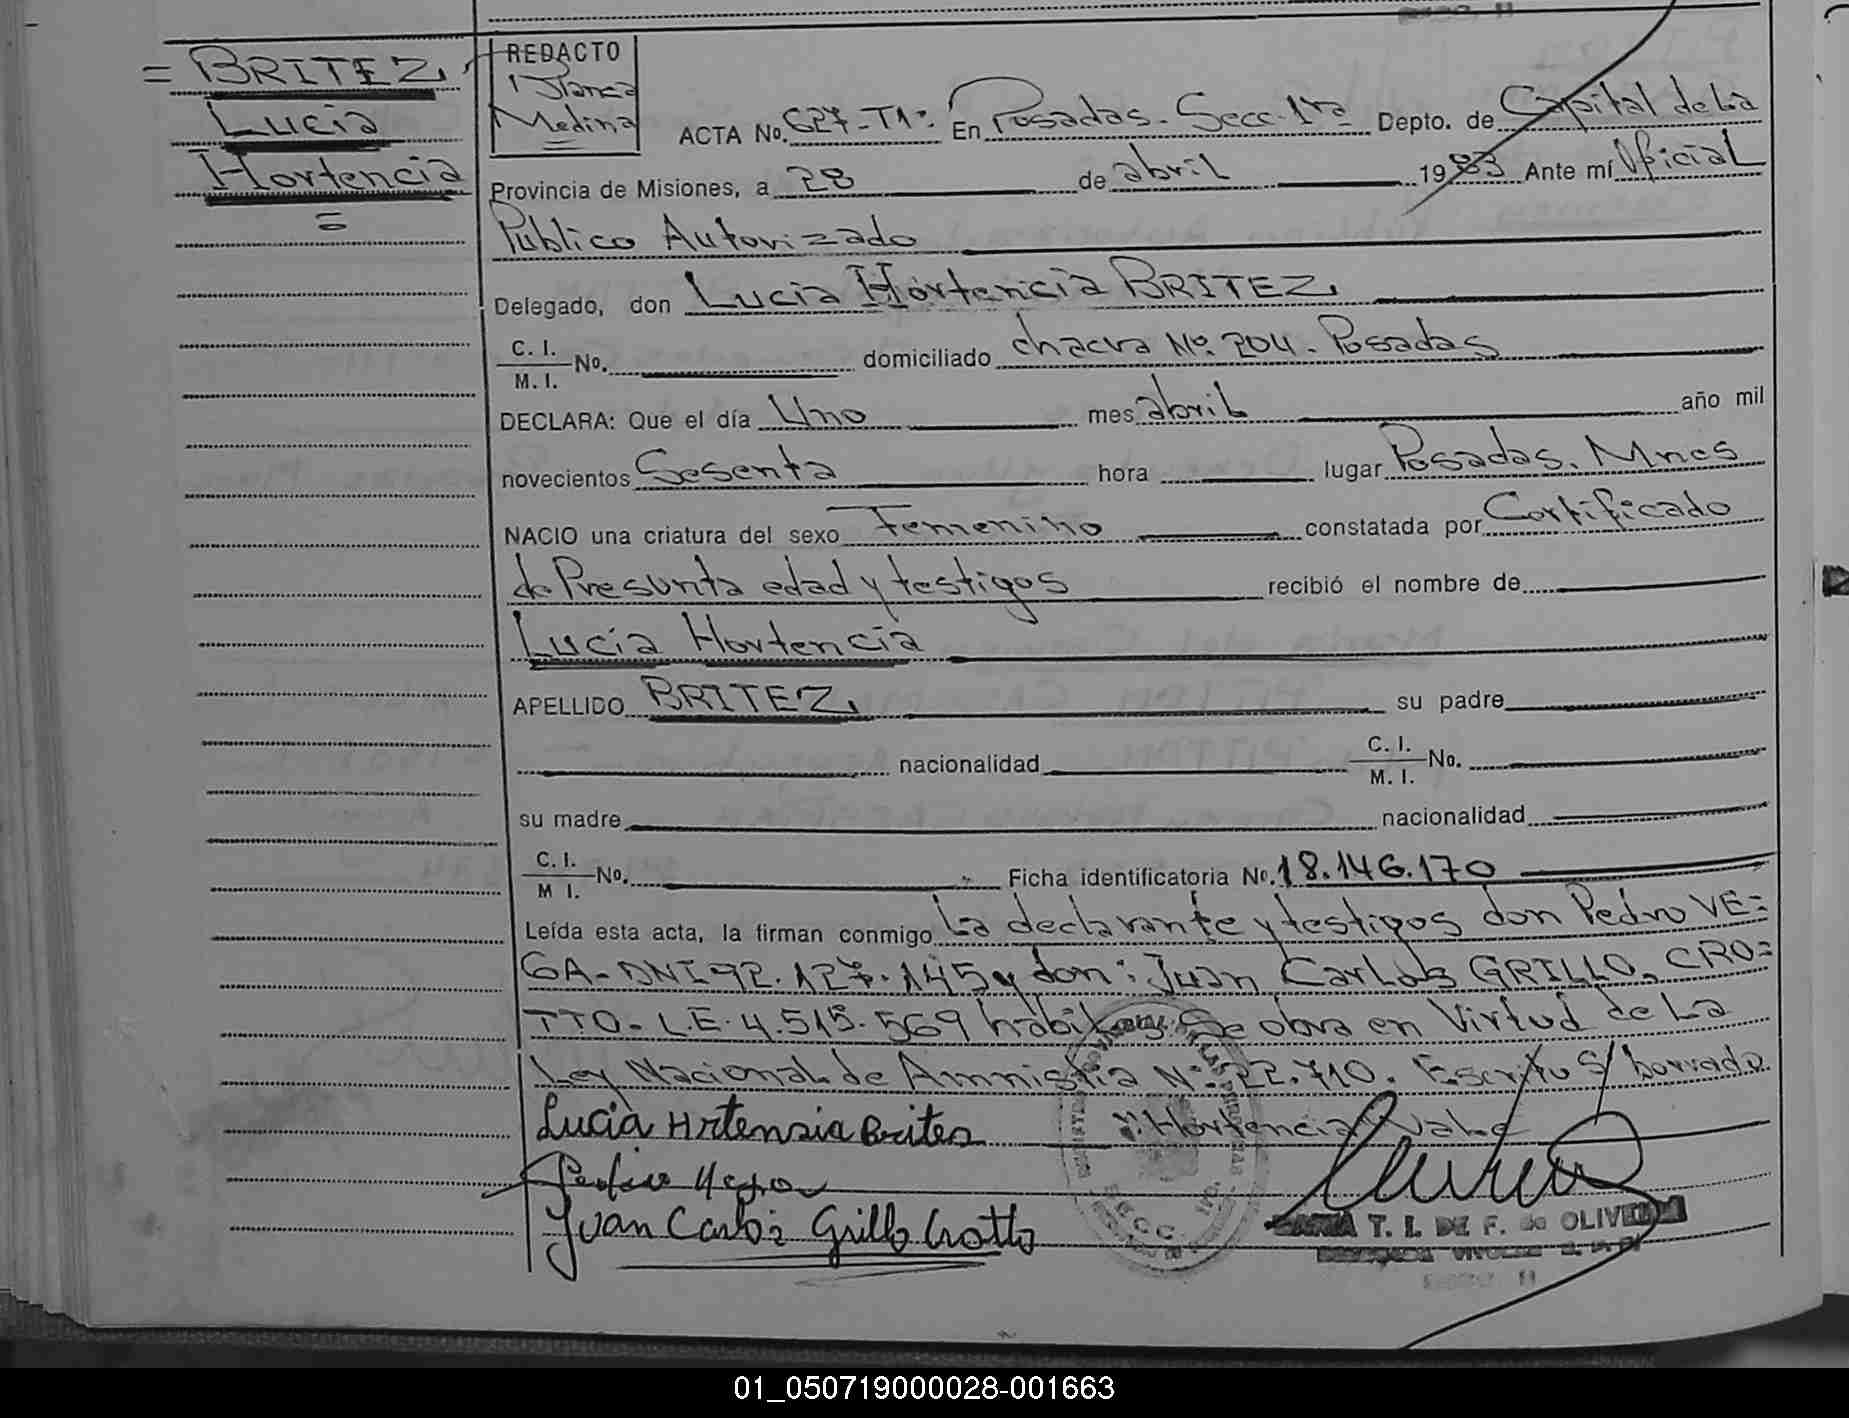 = BRITEZ,
Lucia
Hortencia
=
REDACTO
Blanca
Medina
ACTA No. 627-T1º. En Posadas. Secc. 1ra Depto. de Capital de La
Provincia de Misiones, a 28 de abril 1983 Ante mí Oficial
Publico Autorizado
Delegado, don Lucia Hortencia BRITEZ,
C. I.
M. I. No. domiciliado chacra Nº. 204. Posadas
DECLARA: Que el día Uno mes abril año mil
novecientos Sesenta hora lugar Posadas. Mnes
NACIO una criatura del sexo Femenino constatada por Certificado
de Presunta edad y testigos recibió el nombre de
Lucia Hortencia
APELLIDO BRITEZ, su padre
nacionalidad C. I.
M. I. No.
su madre nacionalidad
C. I.
M I. No. Ficha identificatoria No. 18.146.170
Leída esta acta, la firman conmigo La declarante y testigos don Pedro VE=
GA- DNI 92.127.145 y don: Juan Carlos GRILLO, CRO=
TTO- L.E. 4.515.569 hábiles. Se obra en Virtud de La
Ley Nacional de Amnistia Nº. 22.710. Escrito S/ borrado
"Hortencia" Vale
Lucia Hrtensia Brites
Juan Carlos Grillo Crotto
T. I. DE F. de OLIVEIRA
01_050719000028-001663